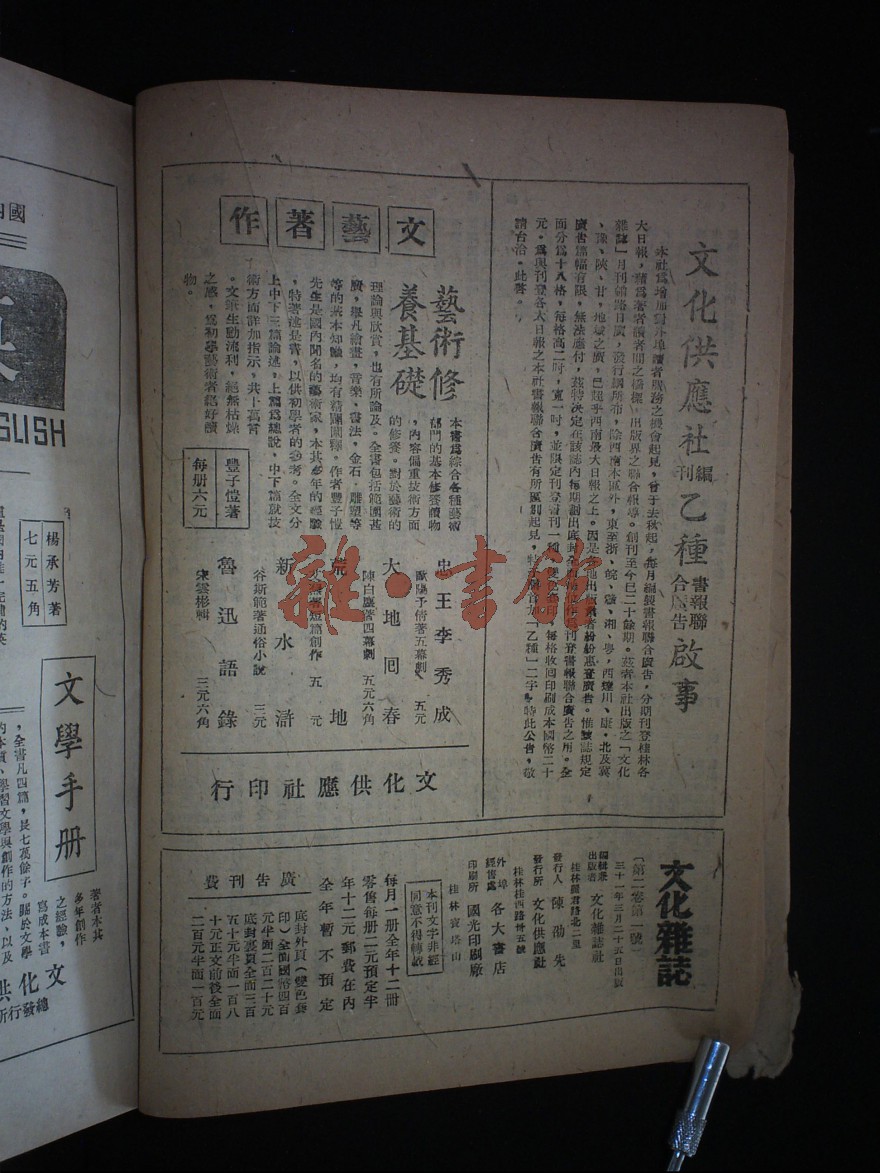 文化供應社編刊乙種書報聯合廣告啟事
本社爲增加對外埠讀者服務之機會起見,曾于去秋起,每月編製書報聯合廣告,分期刊登桂林各
大日報,藉爲著者讀者間之橋樑,出版界之聯合報導。創刊至今已二十餘期。茲者本社出版之「文化
雜誌」月刊銷路日廣,發行網所布,除西南本區外,東至浙、皖、贛、湘、粵,西達川、康,北及冀
、豫、陝、甘,地域之廣,已超乎西南最大日報之上。因是各地出版業者紛紛惠登廣告。惟該誌規定
廣告篇幅有限,無法應付,茲特決定在該誌內每期劃出底封全面
面分爲十八格,每格高二吋,寬一吋,並限定刊登書刊一種,雙色套印,每格收回印刷成本國幣二十
元。爲與刊登各大日報之本社書報聯合廣告有所區別起見,特
「乙種」二字,特此公告,敬
請台洽。此啓。
文藝著作
藝術修養基礎
本書爲綜合各種藝術
部門的基本修養讀物
,內容偏重技術方面
的修養。對於藝術的
理論與欣賞,也有所論及。全書包括範圍甚
廣,舉凡繪畫,音樂,書法,金石,雕塑等
等的基本知識,均有精闢闡釋。作者豐子愷
先生是國內聞名的藝術家,本其多年的經驗
,特著述是書,以供初學者的參考。全文分
上中下三篇論述,上篇爲總說,中下篇就技
術方面詳加指示,共十萬言
。文筆生動流利,絕無枯燥
之感,爲初學藝術者絕好讀
物。
豐子愷著
每册六元
忠王李秀成
歐陽予倩著五幕劇 五元
大地回春
陳白塵著四幕劇 五元六角
荒地
著短篇創作 五元
新水滸
谷斯範著通俗小說 三元
魯迅語錄
宋雲彬輯 三元六角
文化供應社印行
文化雜誌
(第二卷第一號)
三十一年三月二十五日出版
編輯兼出版者 文化雜誌社
桂林麗君路北二里
發行人 陳劭先
發行所 文化供應社
桂林桂西路卅五號
外埠經售處 各大書店
印刷所 國光印刷廠
桂林寶塔山
本刊文字非經
同意不得轉載
每月一册全年十二册
零售每册二元預定半
年十二元郵費在內
全年暫不預定
廣告刊費
底封外頁(雙色套
印)全面國幣四百
元半面二百二十元
底封裏頁全面三百
五十元半面一百八
十元正文前後全面
二百元半面一百元
GLISH
楊承芳著
七元五角
文學手册
著者本其
多年創作
之經驗,
寫成本書
,全書凡四篇,長七萬餘子。關於文學
的本質、學習文學與創作的方法、以及
文化供
總發行所